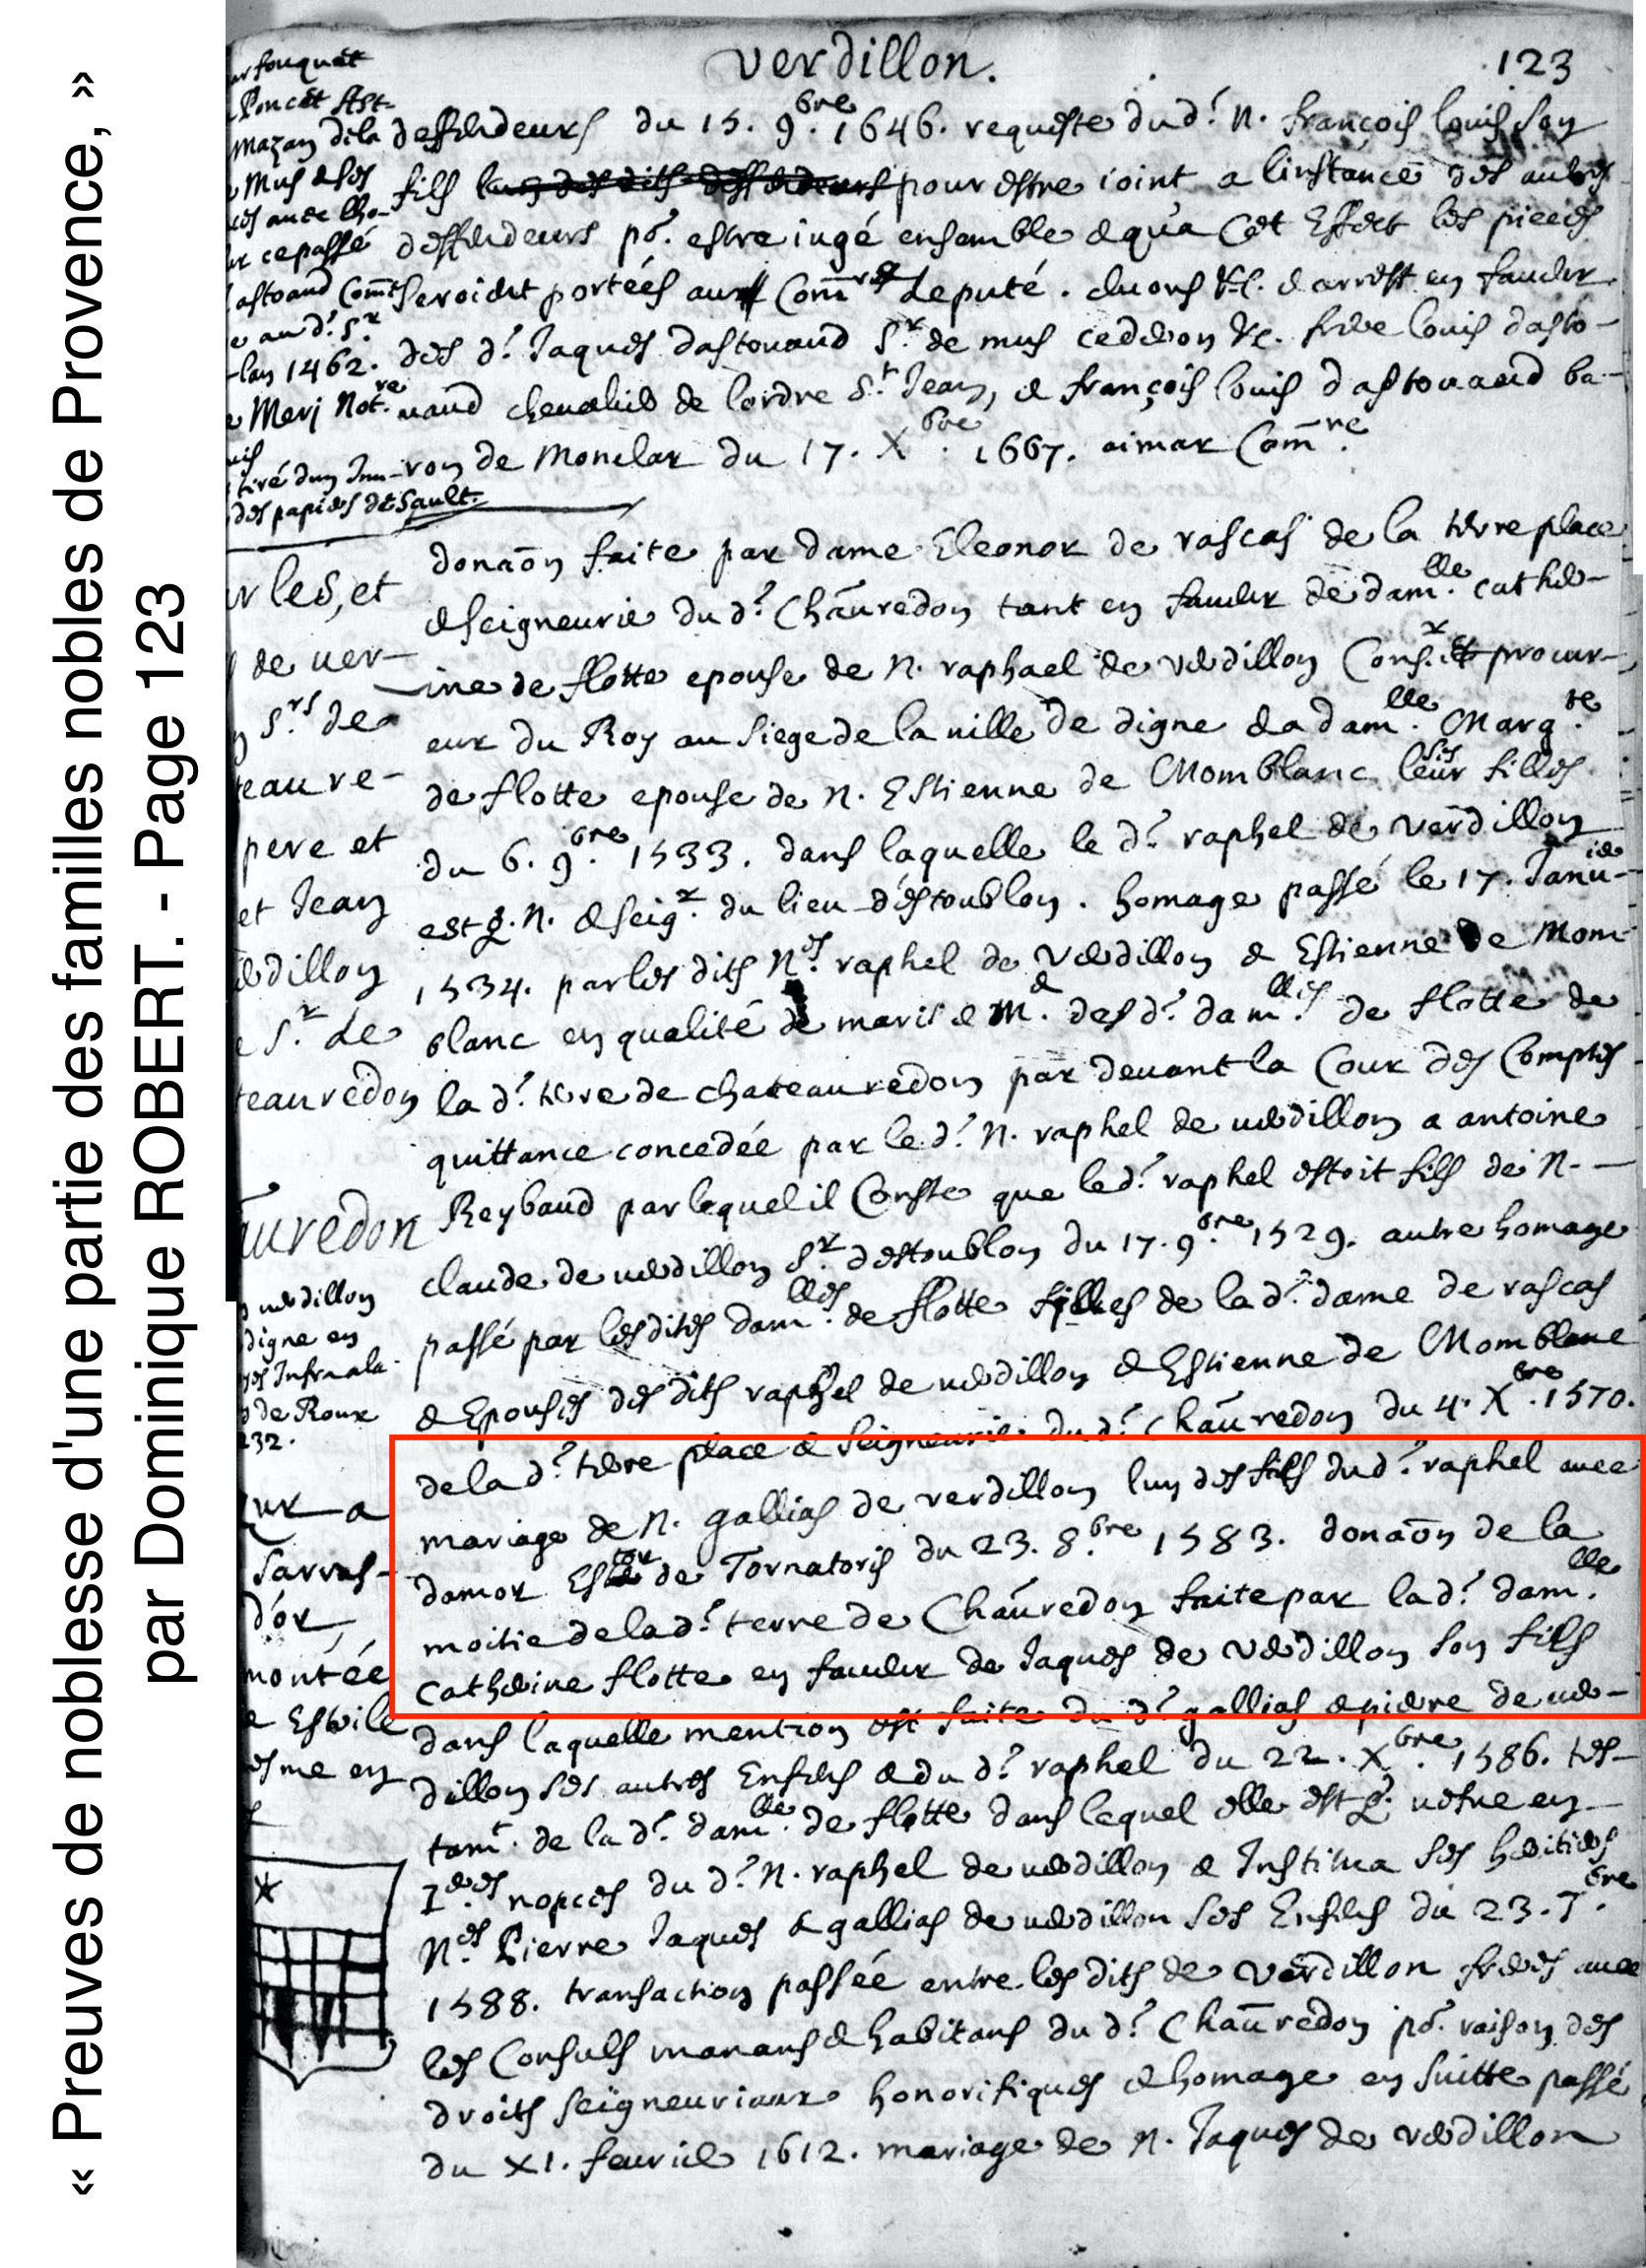 « Preuves de noblesse d'une partie des familles nobles de Provence, »
par Dominique ROBERT. - Page 123
verdillon.
123
fouquet
Poncet Ast-
mazan de la
Mus & ses
ce passé
astoaud Comt
e au d.^t S.^r
lan 1462.
Merj Not.^re
tiré dun Inu-
des papiers de Sault.
rles, et
de uer-
S.^rs de
teau re-
pere et
et Jean
verdillon
S.^r de
teauredon
auredon
uerdillon
digne en
de Roux
232.
sur a
Sarras-
d'or,
montée
esme en
deffendeurs du 15. 9.^bre 1646. requeste dud.^t N. françois louis son
fils pour estre ioint a linstance des autres
deffendeurs po.^r estre iugé ensemble & qu'a Cet Effect les pieces
seroient portées au Com^re deputé. &c. & arrest en faueur
des d.^t Jaques dastouaud S.^r de mus cederon &c. frere louis dasto-
uaud cheualier de lordre S.^t Jean, & françois louis dastouaud ba-
ron de Monclar du 17. X^bre. 1667. aimar Com^re.
donaōn faite par dame Eleonor de rascas de la terre place
& seigneurie du d.^t Chāuredon tant en faueur de dam.^lle cathe-
ine de flotte epouse de N. raphael de verdillon Cons.^r procur-
eur du Roy au siege de la uille de digne & a dam.^lle Marg.^te
de flotte epouse de N. Estienne de Momblanc filles
du 6. 9.^bre 1533. dans laquelle le d.^t raphel de verdillon
est q. N. & seig.^r du lieu d'estoublon. homage passé le 17. Januier
1534. par les dits N.^es raphel de Verdillon & Estienne de Mom-
blanc en qualité de maris & M. des d.^t dam.^lles de flotte de
la d.^t terre de chateauredon par deuant la Cour des Comptes
quittance concedée par le d.^t N. raphel de uerdillon a antoine
Reybaud par lequel il Conste que le d.^t raphel estoit fils de N.
claude de uerdillon S.^r destoublon du 17. 9.^bre 1529. autre homage
passé par lesdites dam.^lles de flotte filles de la d.^t dame de rascas
& Epouses des dits raphel de uerdillon & Estienne de Momblanc
de la d.^t terre place & seigneurie du d.^t Chāuredon du 4. X^bre. 1570.
mariage de N. gallias de verdillon lun des fils du d.^t raphel auec
damor Ester de Tornatoris du 23. 8.^bre 1583. donaōn de la
moitie de la d.^t terre de Chāuredon faite par la d.^t dam.^lle
Catherine flotte en faueur de Jaques de Verdillon son fils
dans laquelle mention est faite du d.^t gallias & pierre de uer-
dillon ses autres Enfens & du d.^t raphel du 22. X^bre. 1586. tes-
tam.^t de la d.^t dam.^lle de flotte dans lequel elle est q. uefue en
nopces du d.^t N. raphel de uerdillon & Institua ses heritiers
N.^es Pierre Jaques & gallias de uerdillon ses Enfens du 23. 7.^bre
1588. transaction passée entre les dits de verdillon freres auec
les Consuls manans & habitans du d.^t Chāuredon po.^r raison des
droits seigneuriaux honorifiques & homage en suitte passé
du XI. feurier 1612. mariage de N. Jaques de verdillon